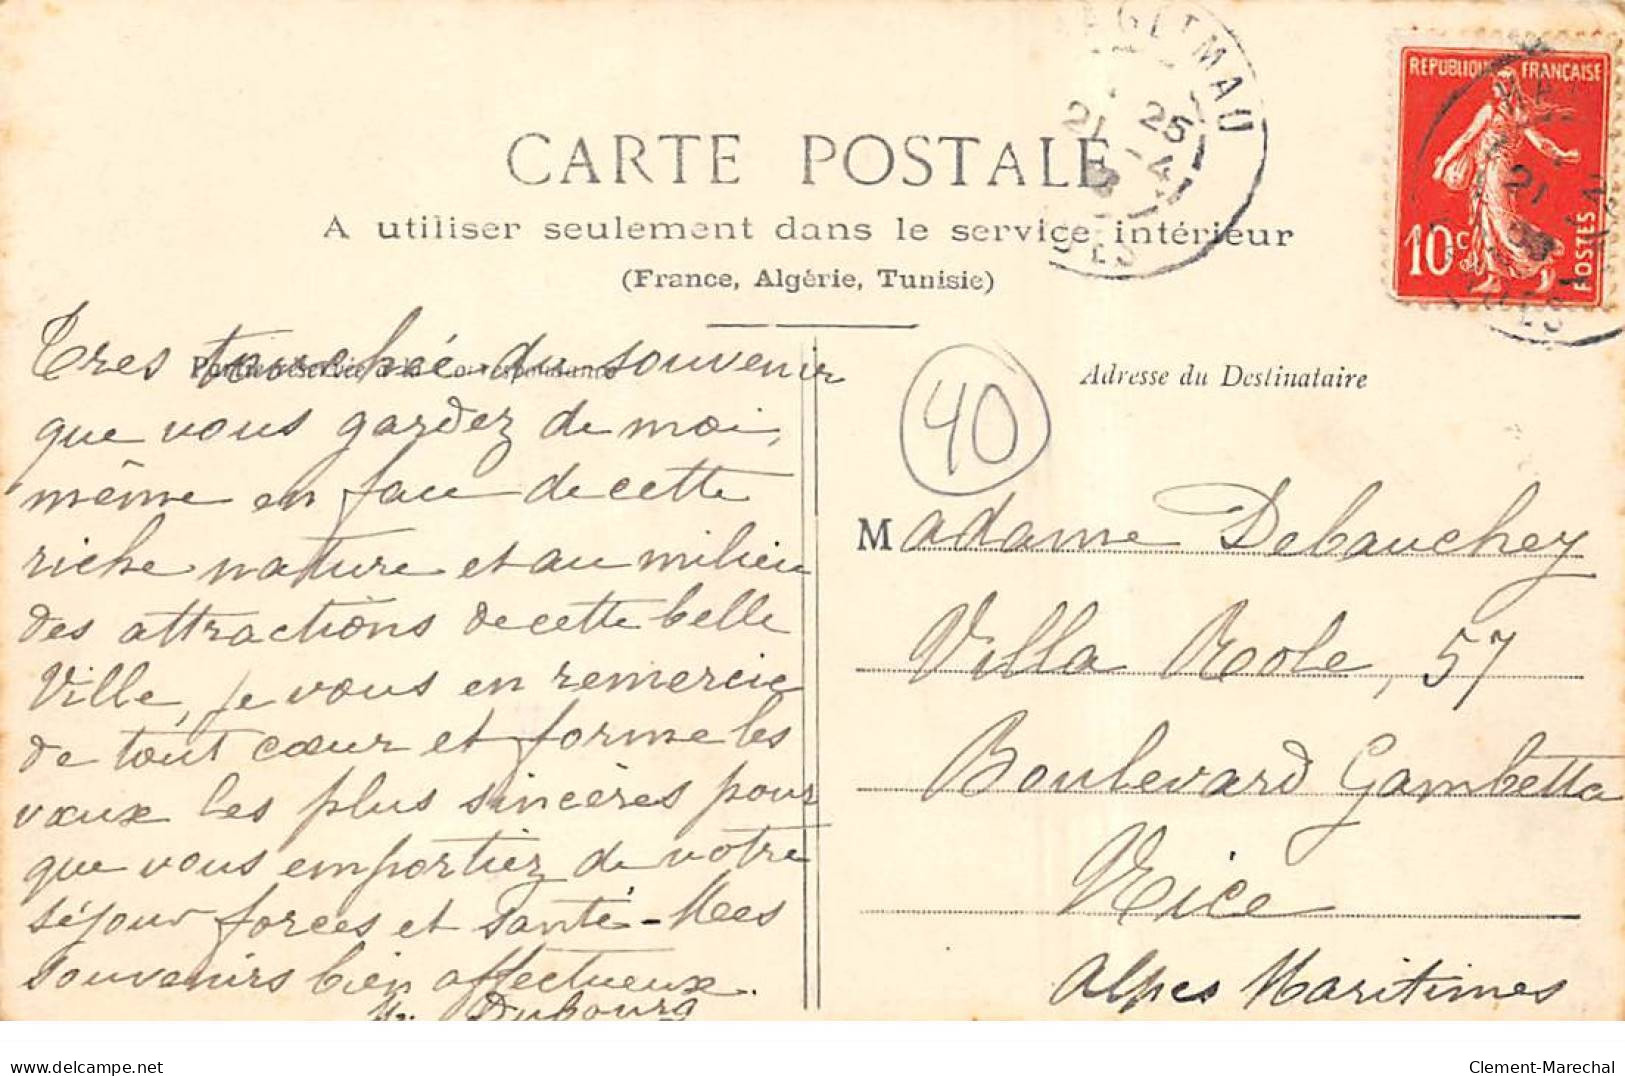 CARTE POSTALE
A utiliser seulement dans le service intérieur
(France, Algérie, Tunisie)
REPUBLIQUE FRANÇAISE
10c
POSTES
MAU
21 25
4
21
Partie réservée à la Correspondance
Adresse du Destinataire
40
Tres touchée du souvenir
que vous gardez de moi,
même en face de cette
riche nature et au milieu
des attractions de cette belle
Ville, je vous en remercie
de tout cœur et forme les
vœux les plus sincères pour
que vous emportiez de votre
séjour forces et santé - Mes
souvenirs bien affectueux.
Dubourg
Madame Debauchey
Villa 57
Boulevard Gambetta
Nice
Alpes Maritimes
delcampe.net
Clement-Marechal